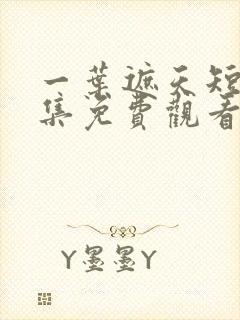 一葉遮天短
集免費觀看
Y墨墨Y